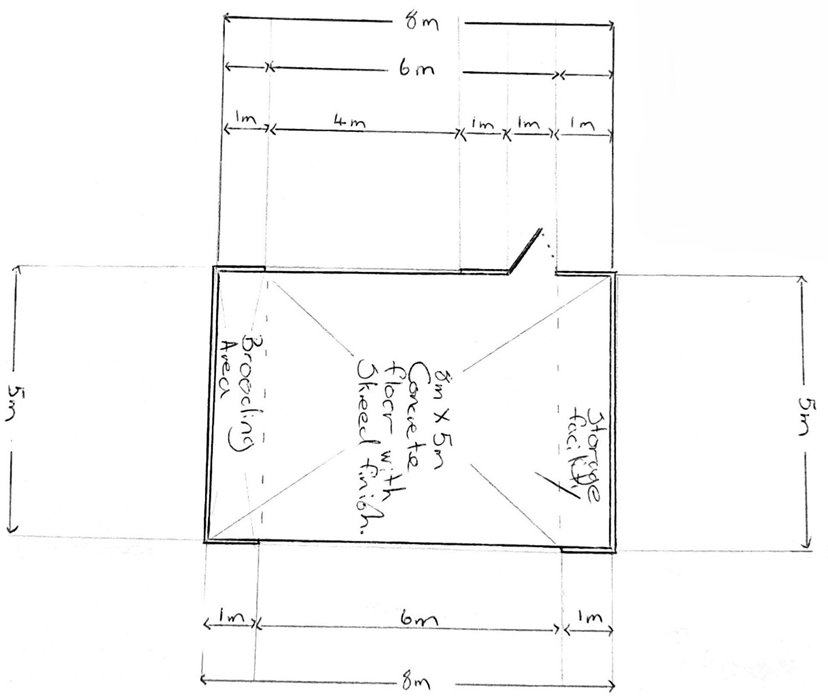 8m
6m
1m
4m
1m
1m
1m
5m
Brooding
Area
8m X 5m
Concrete
floor with
Skreed finish.
Storage
5m
1m
6m
1m
8m